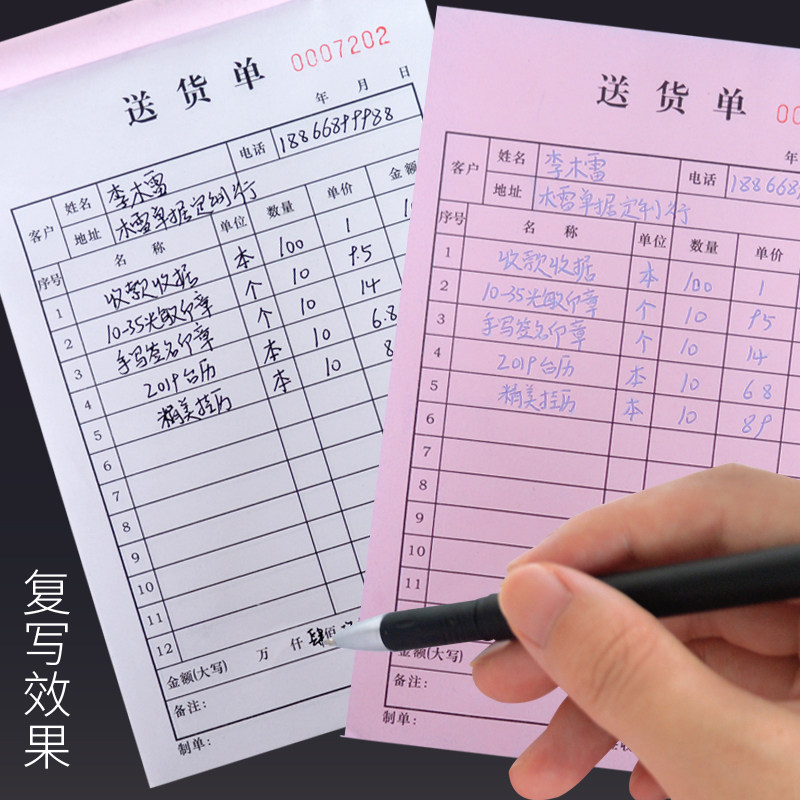 送货单 0007202
年 月 日
客户 姓名 李木雷 电话 18866899988
地址 木雷单据定制行
序号 名称 单位 数量 单价 金额
1 收款收据 本 100 1
2 10-35光敏印章 个 10 9.5
3 手写签名印章 个 10 14
4 2019台历 本 10 6.8
5 精美挂历 本 10 8
6
7
8
9
10
11
12
金额(大写) 万 仟 肆佰
备注:
制单:
送货单 00
年
客户 姓名 李木雷 电话 188668
地址 木雷单据定制行
序号 名称 单位 数量 单价
1 收款收据 本 100 1
2 10-35光敏印章 个 10 9.5
3 手写签名印章 个 10 14
4 2019台历 本 10 6.8
5 精美挂历 本 10 8.9
6
7
8
9
10
11
金额(大写)
备注:
制单:
复写效果